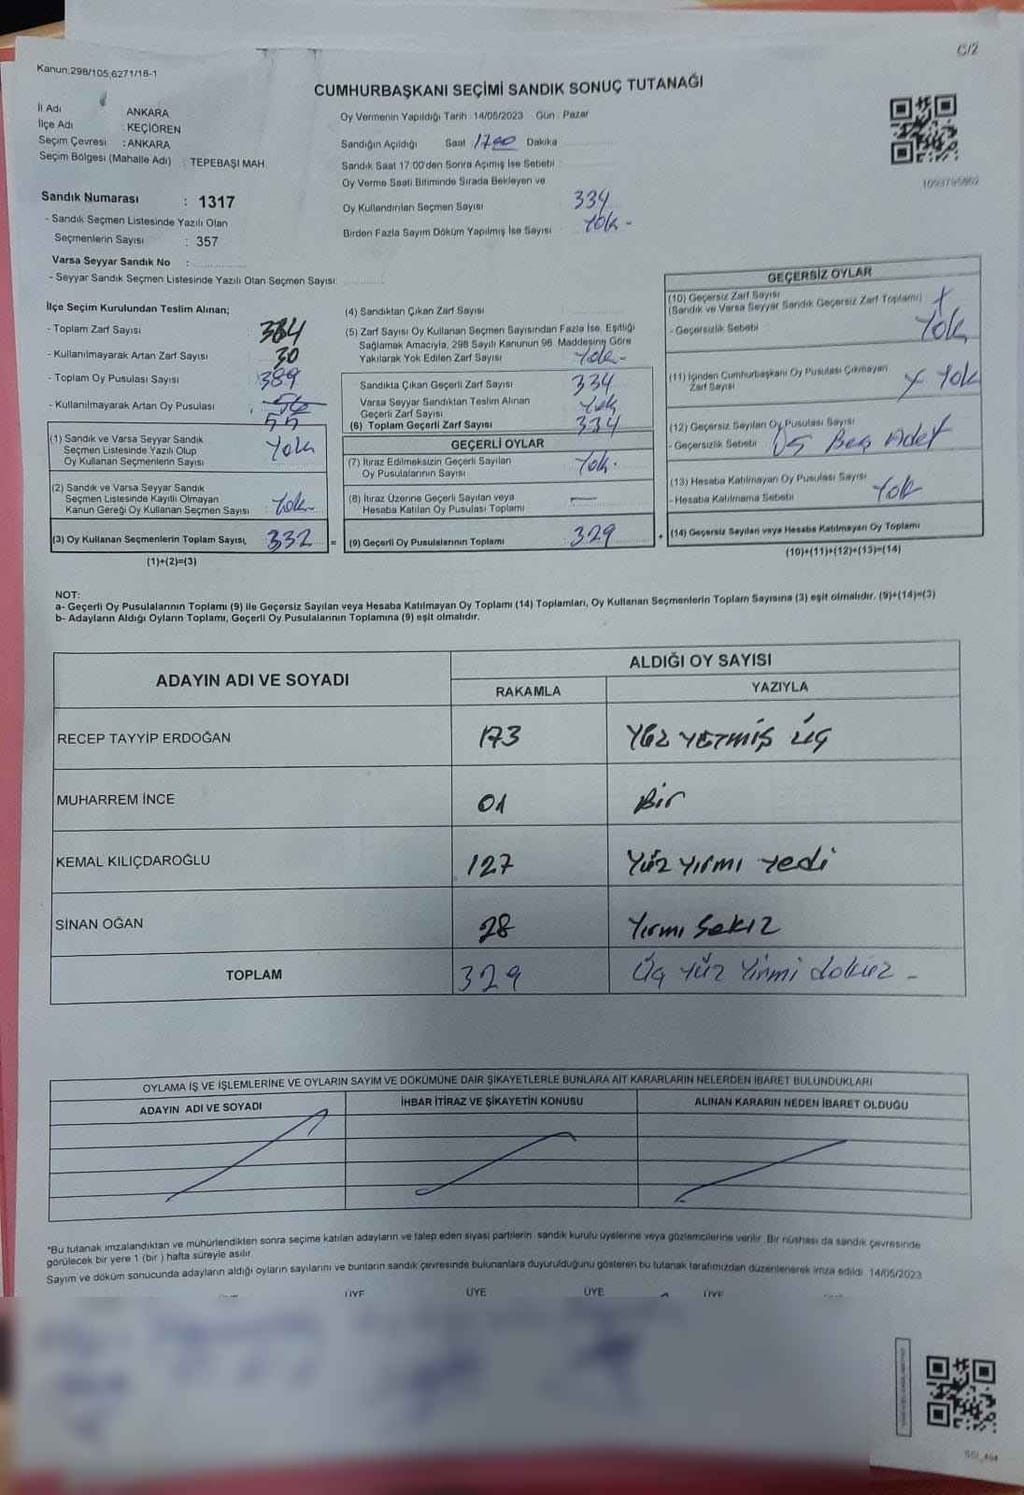 C/2
Kanun:298/105,6271/18-1
CUMHURBAŞKANI SEÇİMİ SANDIK SONUÇ TUTANAĞI
İl Adı ANKARA
İlçe Adı : KEÇİÖREN
Seçim Çevresi : ANKARA
Seçim Bölgesi (Mahalle Adı) : TEPEBAŞI MAH.
Oy Vermenin Yapıldığı Tarih : 14/05/2023 Gün : Pazar
Sandığın Açıldığı Saat 1700 Dakika
Sandık Saat 17:00'den Sonra Açılmış İse Sebebi
Oy Verme Saati Bitiminde Sırada Bekleyen ve
Oy Kullandırılan Seçmen Sayısı 334
Birden Fazla Sayım Döküm Yapılmış İse Sayısı Yok -
Sandık Numarası : 1317
- Sandık Seçmen Listesinde Yazılı Olan
Seçmenlerin Sayısı : 357
Varsa Seyyar Sandık No :
- Seyyar Sandık Seçmen Listesinde Yazılı Olan Seçmen Sayısı:
İlçe Seçim Kurulundan Teslim Alınan;
- Toplam Zarf Sayısı
- Kullanılmayarak Artan Zarf Sayısı 30
- Toplam Oy Pusulası Sayısı : 389
- Kullanılmayarak Artan Oy Pusulası : 55
(1) Sandık ve Varsa Seyyar Sandık
Seçmen Listesinde Yazılı Olup
Oy Kullanan Seçmenlerin Sayısı Yok
(2) Sandık ve Varsa Seyyar Sandık
Seçmen Listesinde Kayıtlı Olmayan
Kanun Gereği Oy Kullanan Seçmen Sayısı : Yok-
(3) Oy Kullanan Seçmenlerin Toplam Sayısı, 332 =
(1)+(2)=(3)
(4) Sandıktan Çıkan Zarf Sayısı
(5) Zarf Sayısı Oy Kullanan Seçmen Sayısından Fazla İse, Eşitliği
Sağlamak Amacıyla, 298 Sayılı Kanunun 98. Maddesine Göre
Yakılarak Yok Edilen Zarf Sayısı Yok-
Sandıkta Çıkan Geçerli Zarf Sayısı 334
Varsa Seyyar Sandıktan Teslim Alınan
Geçerli Zarf Sayısı Yok
(6) Toplam Geçerli Zarf Sayısı 334
GEÇERLİ OYLAR
(7) İtiraz Edilmeksizin Geçerli Sayılan
Oy Pusulalarının Sayısı Yok.
(8) İtiraz Üzerine Geçerli Sayılan veya
Hesaba Katılan Oy Pusulası Toplamı —
(9) Geçerli Oy Pusulalarının Toplamı 329 +
GEÇERSİZ OYLAR
(10) Geçersiz Zarf Sayısı
(Sandık ve Varsa Seyyar Sandık Geçersiz Zarf Toplamı)
- Geçersizlik Sebebi Yok
(11) İçinden Cumhurbaşkanı Oy Pusulası Çıkmayan
Zarf Sayısı Yok
(12) Geçersiz Sayılan Oy Pusulası Sayısı
- Geçersizlik Sebebi 05 Beş Adet
(13) Hesaba Katılmayan Oy Pusulası Sayısı
- Hesaba Katılmama Sebebi Yok
(14) Geçersiz Sayılan veya Hesaba Katılmayan Oy Toplamı
(10)+(11)+(12)+(13)=(14)
NOT:
a- Geçerli Oy Pusulalarının Toplamı (9) ile Geçersiz Sayılan veya Hesaba Katılmayan Oy Toplamı (14) Toplamları, Oy Kullanan Seçmenlerin Toplam Sayısına (3) eşit olmalıdır. (9)+(14)=(3)
b- Adayların Aldığı Oyların Toplamı, Geçerli Oy Pusulalarının Toplamına (9) eşit olmalıdır.
ADAYIN ADI VE SOYADI
ALDIĞI OY SAYISI
RAKAMLA YAZIYLA
RECEP TAYYİP ERDOĞAN 173 YÜZ YETMİŞ ÜÇ
MUHARREM İNCE 01 Bir
KEMAL KILIÇDAROĞLU 127 Yüz Yirmi Yedi
SİNAN OĞAN 28 Yirmi Sekiz
TOPLAM 329 Üç Yüz Yirmi dokuz -
OYLAMA İŞ VE İŞLEMLERİNE VE OYLARIN SAYIM VE DÖKÜMÜNE DAİR ŞİKAYETLERLE BUNLARA AİT KARARLARIN NELERDEN İBARET BULUNDUKLARI
ADAYIN ADI VE SOYADI İHBAR İTİRAZ VE ŞİKAYETİN KONUSU ALINAN KARARIN NEDEN İBARET OLDUĞU
*Bu tutanak imzalandıktan ve mühürlendikten sonra seçime katılan adayların ve talep eden siyasi partilerin sandık kurulu üyelerine veya gözlemcilerine verilir. Bir nüshası da sandık çevresinde
görülecek bir yere 1 (bir) hafta süreyle asılır.
Sayım ve döküm sonucunda adayların aldığı oyların sayılarını ve bunların sandık çevresinde bulunanlara duyurulduğunu gösteren bu tutanak tarafımızdan düzenlenerek imza edildi. 14/05/2023
ÜYE ÜYE ÜYE ÜYE